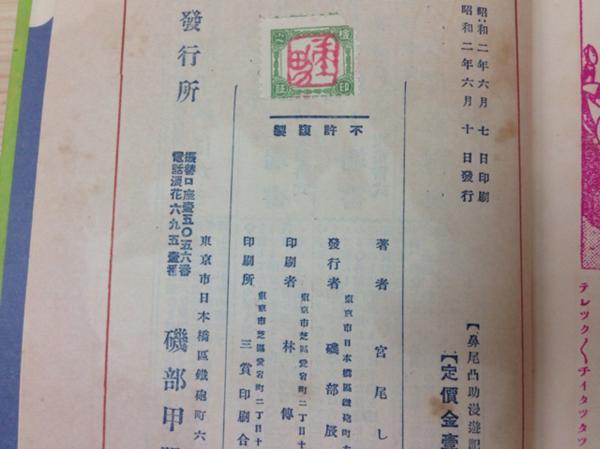 テレツク〱チイタツタツ
昭和二年六月七日印刷
昭和二年六月十日發行
【鼻尾凸助漫遊記
【定價金壹
檢印
不許複製
著者 宮尾し
東京市日本橋區鐵砲町
發行者 磯部辰
東京市芝區愛宕町二丁目十
印刷者 林傳
東京市芝區愛宕町二丁目十
印刷所 三賞印刷合
發行所
東京市日本橋區鐵砲町六
磯部甲
電話浪花六九五壹番
振替口座壹五〇五六番